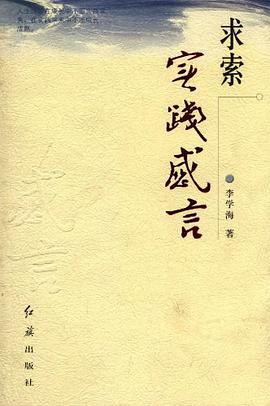 求索
实践感言
李学海 著
红旗出版社